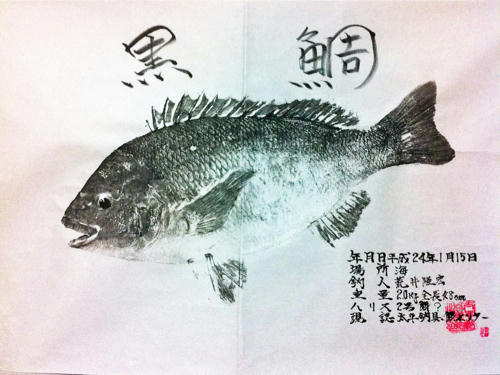 黒鯛
年月日平成24年1月15日
場所海
釣人荒井隆宏
重量2.0kg全長48cm
ハリス2号
現認太平